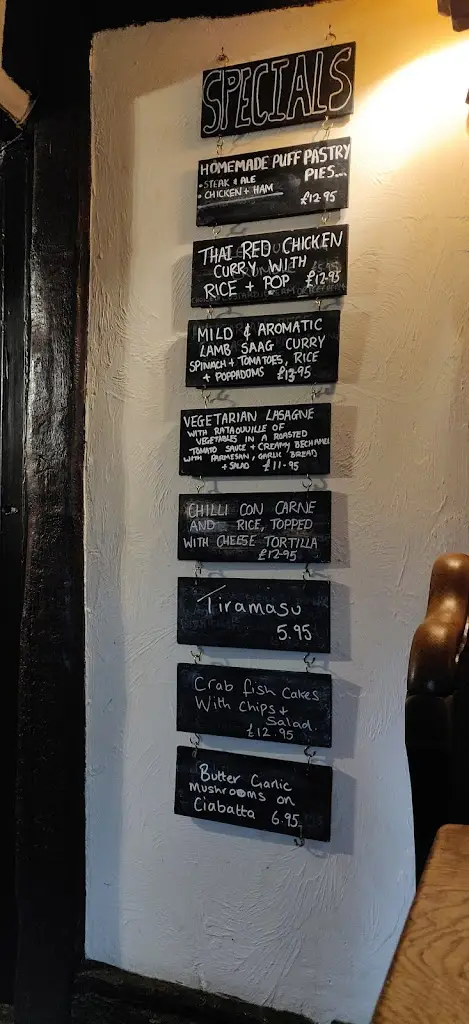 SPECIALS
HOMEMADE PUFF PASTRY
PIES...
• STEAK & ALE
• CHICKEN + HAM
£12.95
THAI RED CHICKEN
CURRY WITH
RICE + POP £12.95
MILD & AROMATIC
LAMB SAAG CURRY
SPINACH + TOMATOES, RICE
+ POPPADOMS £13.95
VEGETARIAN LASAGNE
WITH RATAOUVILLE OF
VEGETABLES IN A ROASTED
TOMATO SAUCE + CREAMY BECHAMEL
WITH PARMESAN, GARLIC BREAD
+ SALAD £11.95
CHILLI CON CARNE
AND RICE, TOPPED
WITH CHEESE TORTILLA
£12.95
Tiramasu
5.95
Crab fish cakes
With chips +
Salad.
£12.95
Butter Garlic
Mushrooms on
Ciabatta 6.95